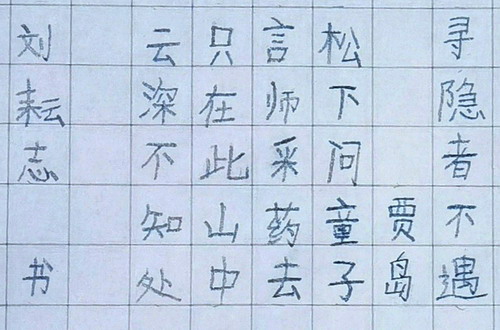 寻隐者不遇
贾岛
松下问童子
言师采药去
只在此山中
云深不知处
刘耘志书